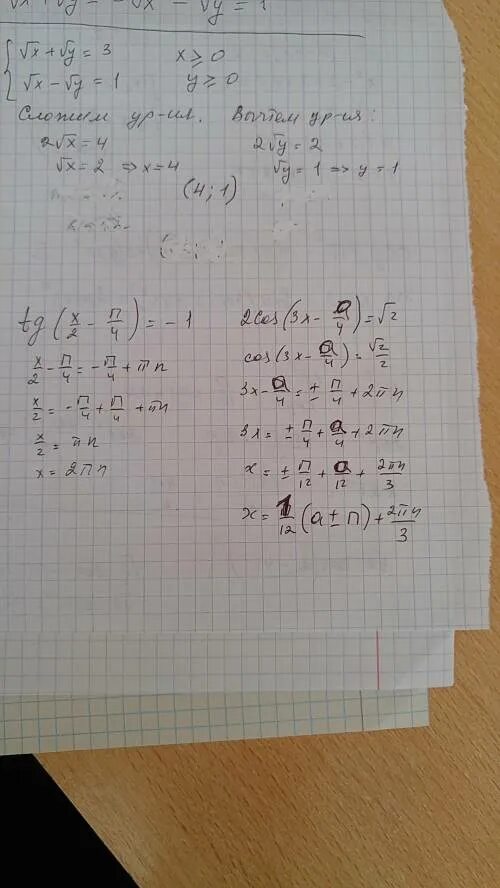 √x + √y = - √x - √y = 1
{ √x + √y = 3    x ≥ 0
√x - √y = 1    y ≥ 0
Сложим ур-ия.    Вычтем ур-ия:
2√x = 4    2√y = 2
√x = 2 ⇒ x = 4    √y = 1 ⇒ y = 1
(4; 1)
tg(x/2 - π/4) = -1
x/2 - π/4 = -π/4 + πn
x/2 = -π/4 + π/4 + πn
x/2 = πn
x = 2πn
2cos(3x - a/4) = √2
cos(3x - a/4) = √2/2
3x - a/4 = ± π/4 + 2πn
3x = ± π/4 + a/4 + 2πn
x = ± π/12 + a/12 + 2πn/3
x = 1/12 (a ± π) + 2πn/3